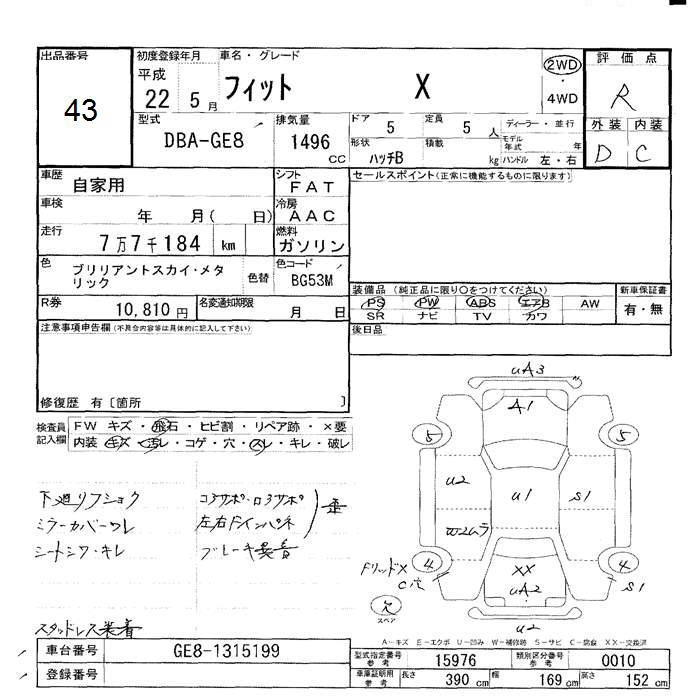 出品番号
43
初度登録年月
平成
22 5月
車名・グレード
フィット X
2WD
・
4WD
評価点
R
外装 内装
D C
型式
DBA-GE8
排気量
1496
CC
ドア
5
定員
5 人
ディーラー・並行
モデル年式 年
形状
ハッチB
積載
kg
ハンドル 左・右
車歴
自家用
シフト
FAT
セールスポイント(正常に機能するものに限ります)
車検
年 月( 日)
冷房
AAC
走行
7万7千184 km
燃料
ガソリン
色
ブリリアントスカイ・メタ
リック
色替
色コード
BG53M
装備品 (純正品に限り〇をつけてください)
PS PW ABS エアB AW
SR ナビ TV カワ
新車保証書
有・無
R券
10,810円
名変通知期限
月 日
後日品
注意事項申告欄(不具合内容等は具体的に記入して下さい)
修復歴 有〔箇所 〕
検査員
記入欄
FW キズ・飛石・ヒビ割・リペア跡・×要
内装・キズ・汚レ・コゲ・穴・スレ・キレ・破レ
下廻リフショク
ミラーカバーワレ
シートシワ・キレ
コアサポ・ロアサポ
左右ドインパネ
歪
ブレーキ異音
スタッドレス装着
uA3
A1
5
5
u2
u1
S1
W2ムラ
4
4
FリッドX
C穴
XX
uA2
S1
欠
スペア
u2
A-キズ E-エクボ U-凹み W-補修跡 S-サビ C-腐食 XX-交換済
車台番号
GE8-1315199
登録番号
型式指定番号
参考
15976
類別区分番号
参考
0010
車庫証明用
参考
長さ
390 cm
幅
169 cm
高さ
152 cm